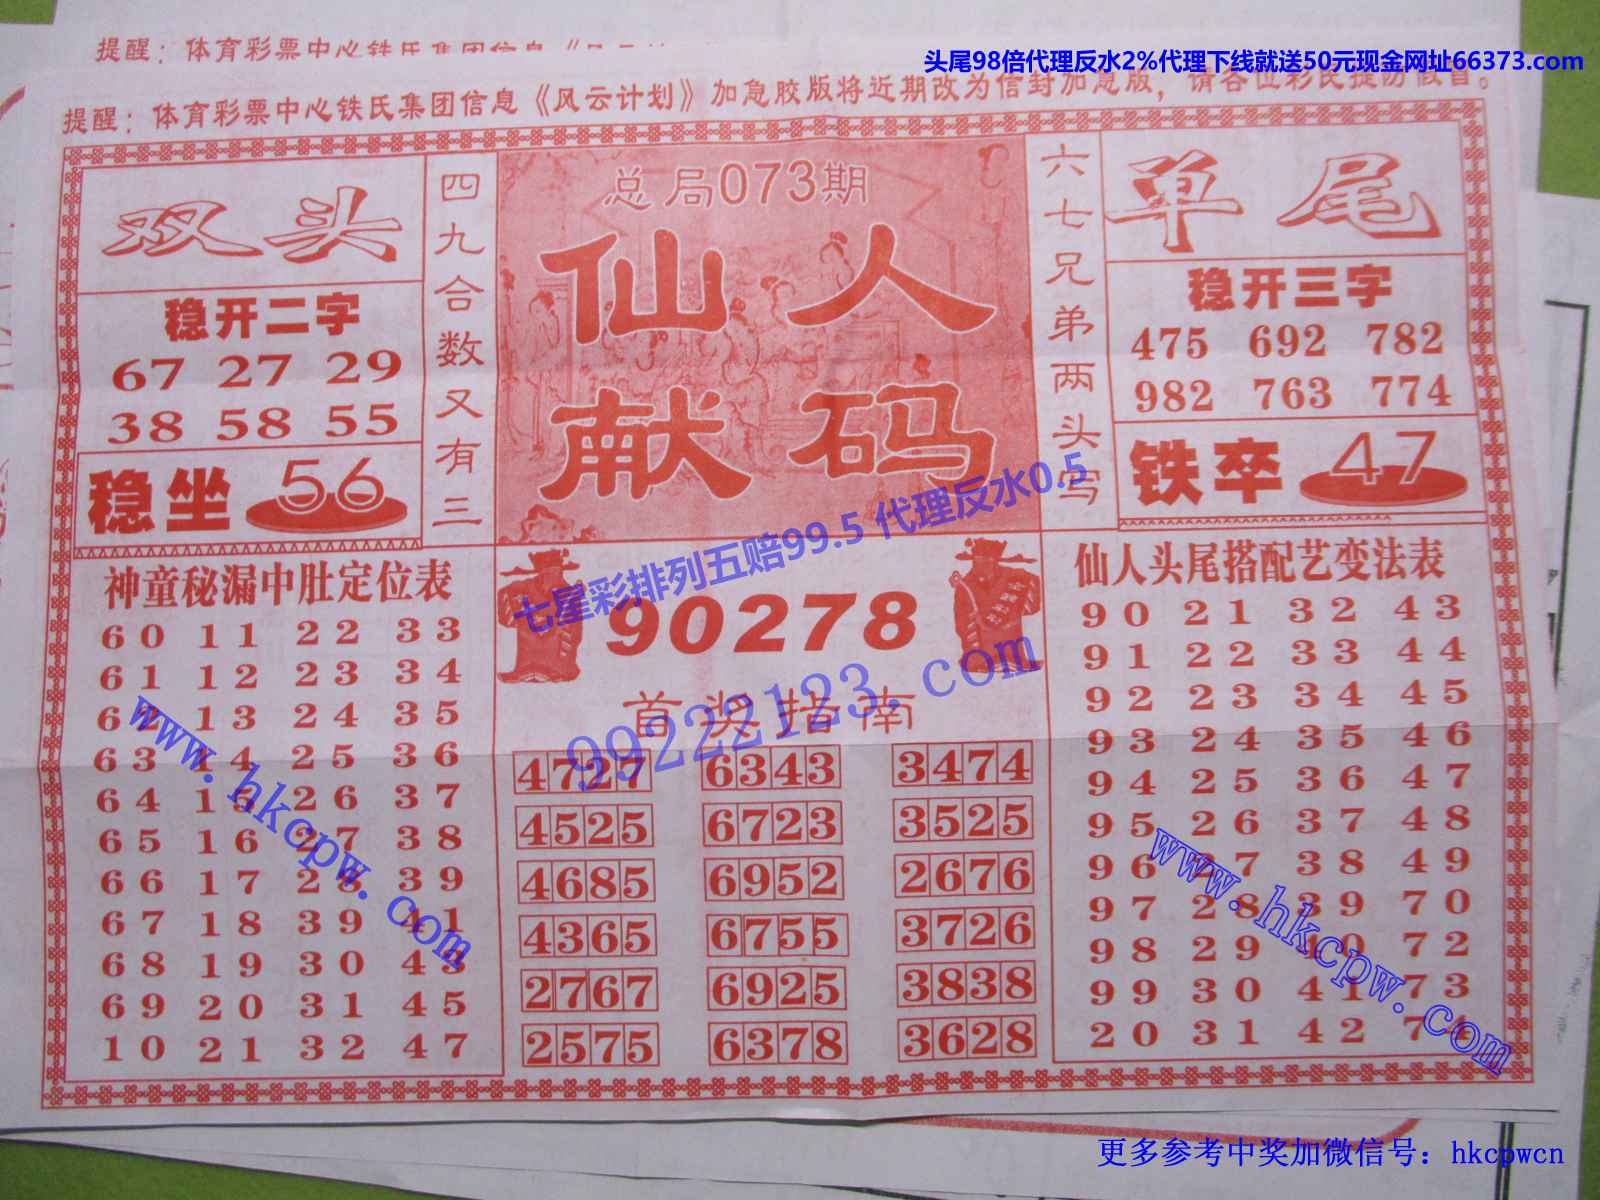 头尾98倍代理反水2%代理下线就送50元现金网址66373.com
提醒：体育彩票中心铁氏集团信息
提醒：体育彩票中心铁氏集团信息《风云计划》加急胶版将近期改为信封加急版，请各位彩民提防假冒。
双头
稳开二字
67 27 29
38 58 55
稳坐 56
四九合数又有三
总局073期
仙人
献码
六七兄弟两头写
单尾
稳开三字
475 692 782
982 763 774
铁卒 47
七星彩排列五赔99.5 代理反水0.5
99222123.com
神童秘漏中肚定位表
60 11 22 33
61 12 23 34
62 13 24 35
63 14 25 36
64 15 26 37
65 16 27 38
66 17 28 39
67 18 39 41
68 19 30 43
69 20 31 45
10 21 32 47
www.hkcpw.com
90278
首奖指南
4727 6343 3474
4525 6723 3525
4685 6952 2676
4365 6755 3726
2767 6925 3838
2575 6378 3628
仙人头尾搭配艺变法表
90 21 32 43
91 22 33 44
92 23 34 45
93 24 35 46
94 25 36 47
95 26 37 48
96 27 38 49
97 28 39 70
98 29 40 72
99 30 41 73
20 31 42 74
www.hkcpw.com
更多参考中奖加微信号：hkcpwcn